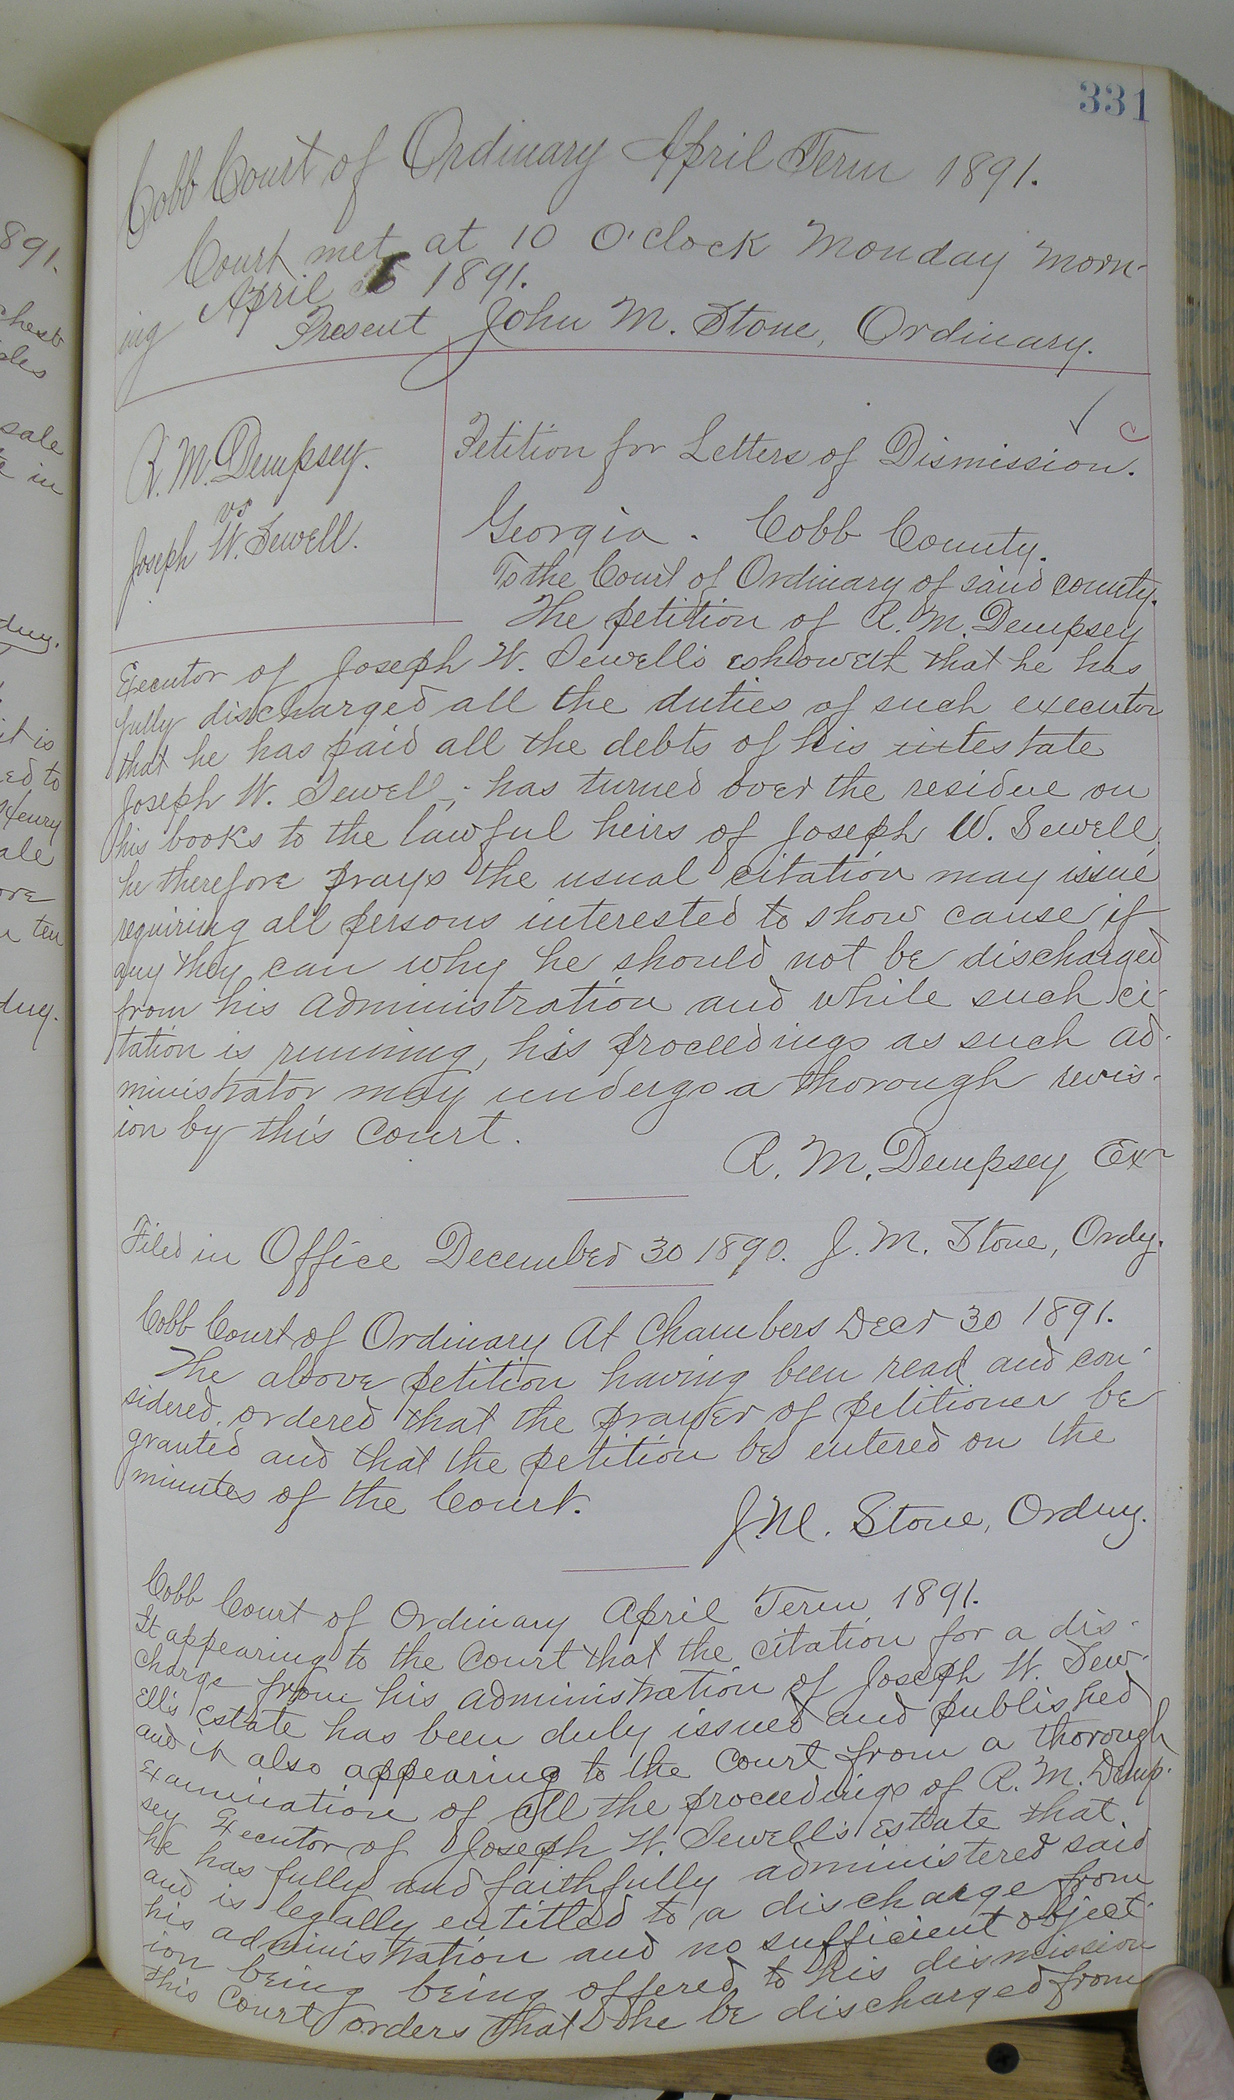 331
Cobb Court of Ordinary April Term 1891.
Court met at 10 O'clock Monday morn-
ing April 6 1891.
Present John M. Stone, Ordinary.
R. M. Dempsey.
vs
Joseph W. Sewell.
Petition for Letters of Dismission.
Georgia. Cobb County.
To the Court of Ordinary of said county.
The petition of R. M. Dempsey
Executor of Joseph W. Sewell's eshoweth that he has
fully discharged all the duties of such executor
that he has paid all the debts of his intestate
Joseph W. Sewell; has turned over the residue on
his books to the lawful heirs of Joseph W. Sewell,
he therefore prays the usual citation may issue
requiring all persons interested to show cause if
any they can why he should not be discharged
from his administration and while such ci-
tation is running, his proceedings as such ad-
ministrator may undergo a thorough revis-
ion by this court.
R. M. Dempsey Exr
Filed in Office December 30 1890. J. M. Stone, Ordy.
Cobb Court of Ordinary At Chambers Decr 30 1891.
The above petition having been read and con-
sidered, ordered that the prayer of petitioner be
granted and that the petition be entered on the
minutes of the Court.
J. M. Stone, Ordny.
Cobb Court of Ordinary April Term 1891.
It appearing to the Court that the citation for a dis-
charge from his administration of Joseph W. Sew-
ell's estate has been duly issued and published
and it also appearing to the court from a thorough
examination of all the proceedings of R. M. Demp-
sey Executor of Joseph W. Sewell's estate that
he has fully and faithfully administered said
and is legally entitled to a discharge from
his administration and no sufficient object-
ion being being offered to his dismission
this Court orders that he be discharged from
891.
sale
in
duy.
it is
ed to
Henry
ale
ten
duy.